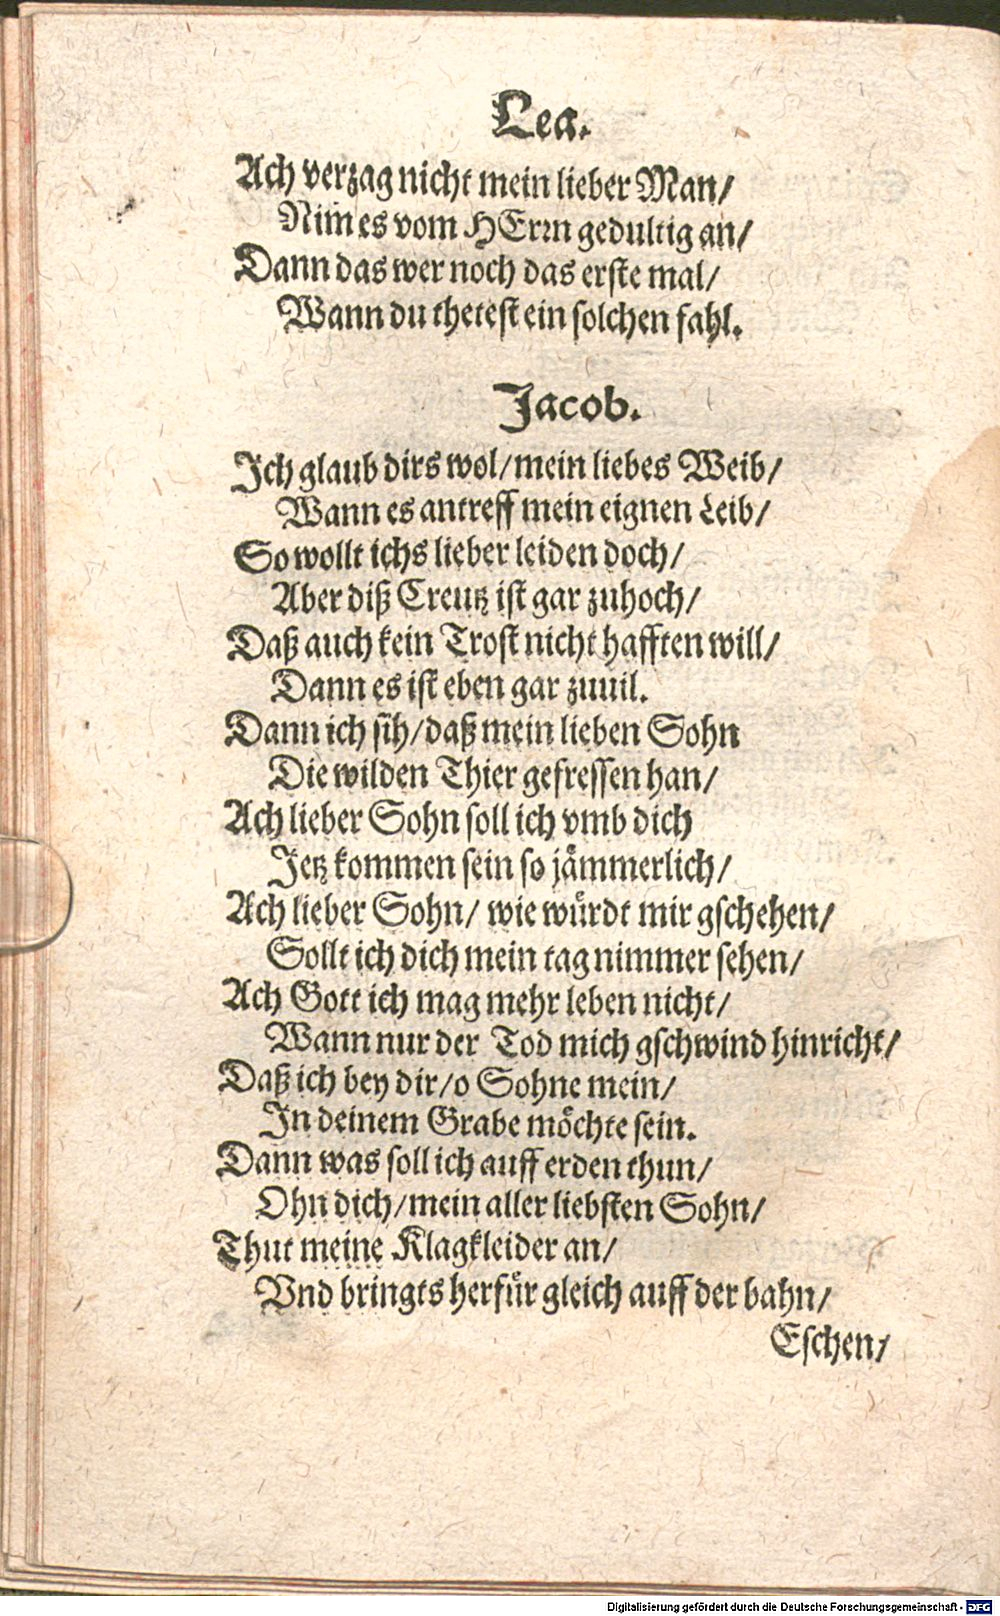 Lea.
Ach verzag nicht mein lieber Man/
Nim̃ es vom HErꝛn gedultig an/
Dann das wer noch das erste mal/
Wann du thetest ein solchen fahl.
Jacob.
Ich glaub dirs wol/mein liebes Weib/
Wann es antreff mein eignen Leib/
So wollt ichs lieber leiden doch/
Aber diß Creutz ist gar zuhoch/
Daß auch kein Trost nicht hafften will/
Dann es ist eben gar zuuil.
Dann ich sih/daß mein lieben Sohn
Die wilden Thier gefressen han/
Ach lieber Sohn soll ich vmb dich
Jetz kommen sein so jaͤmmerlich/
Ach lieber Sohn/ wie wuͤrdt mir gschehen/
Sollt ich dich mein tag nimmer sehen/
Ach Gott ich mag mehr leben nicht/
Wann nur der Tod mich gschwind hinricht/
Daß ich bey dir/o Sohne mein/
In deinem Grabe moͤchte sein.
Dann was soll ich auff erden thun/
Ohn dich/mein aller liebsten Sohn/
Thut meine Klagkleider an/
Vnd bringts herfuͤr gleich auff der bahn/
Eschen/
Digitalisierung gefördert durch die Deutsche Forschungsgemeinschaft - DFG